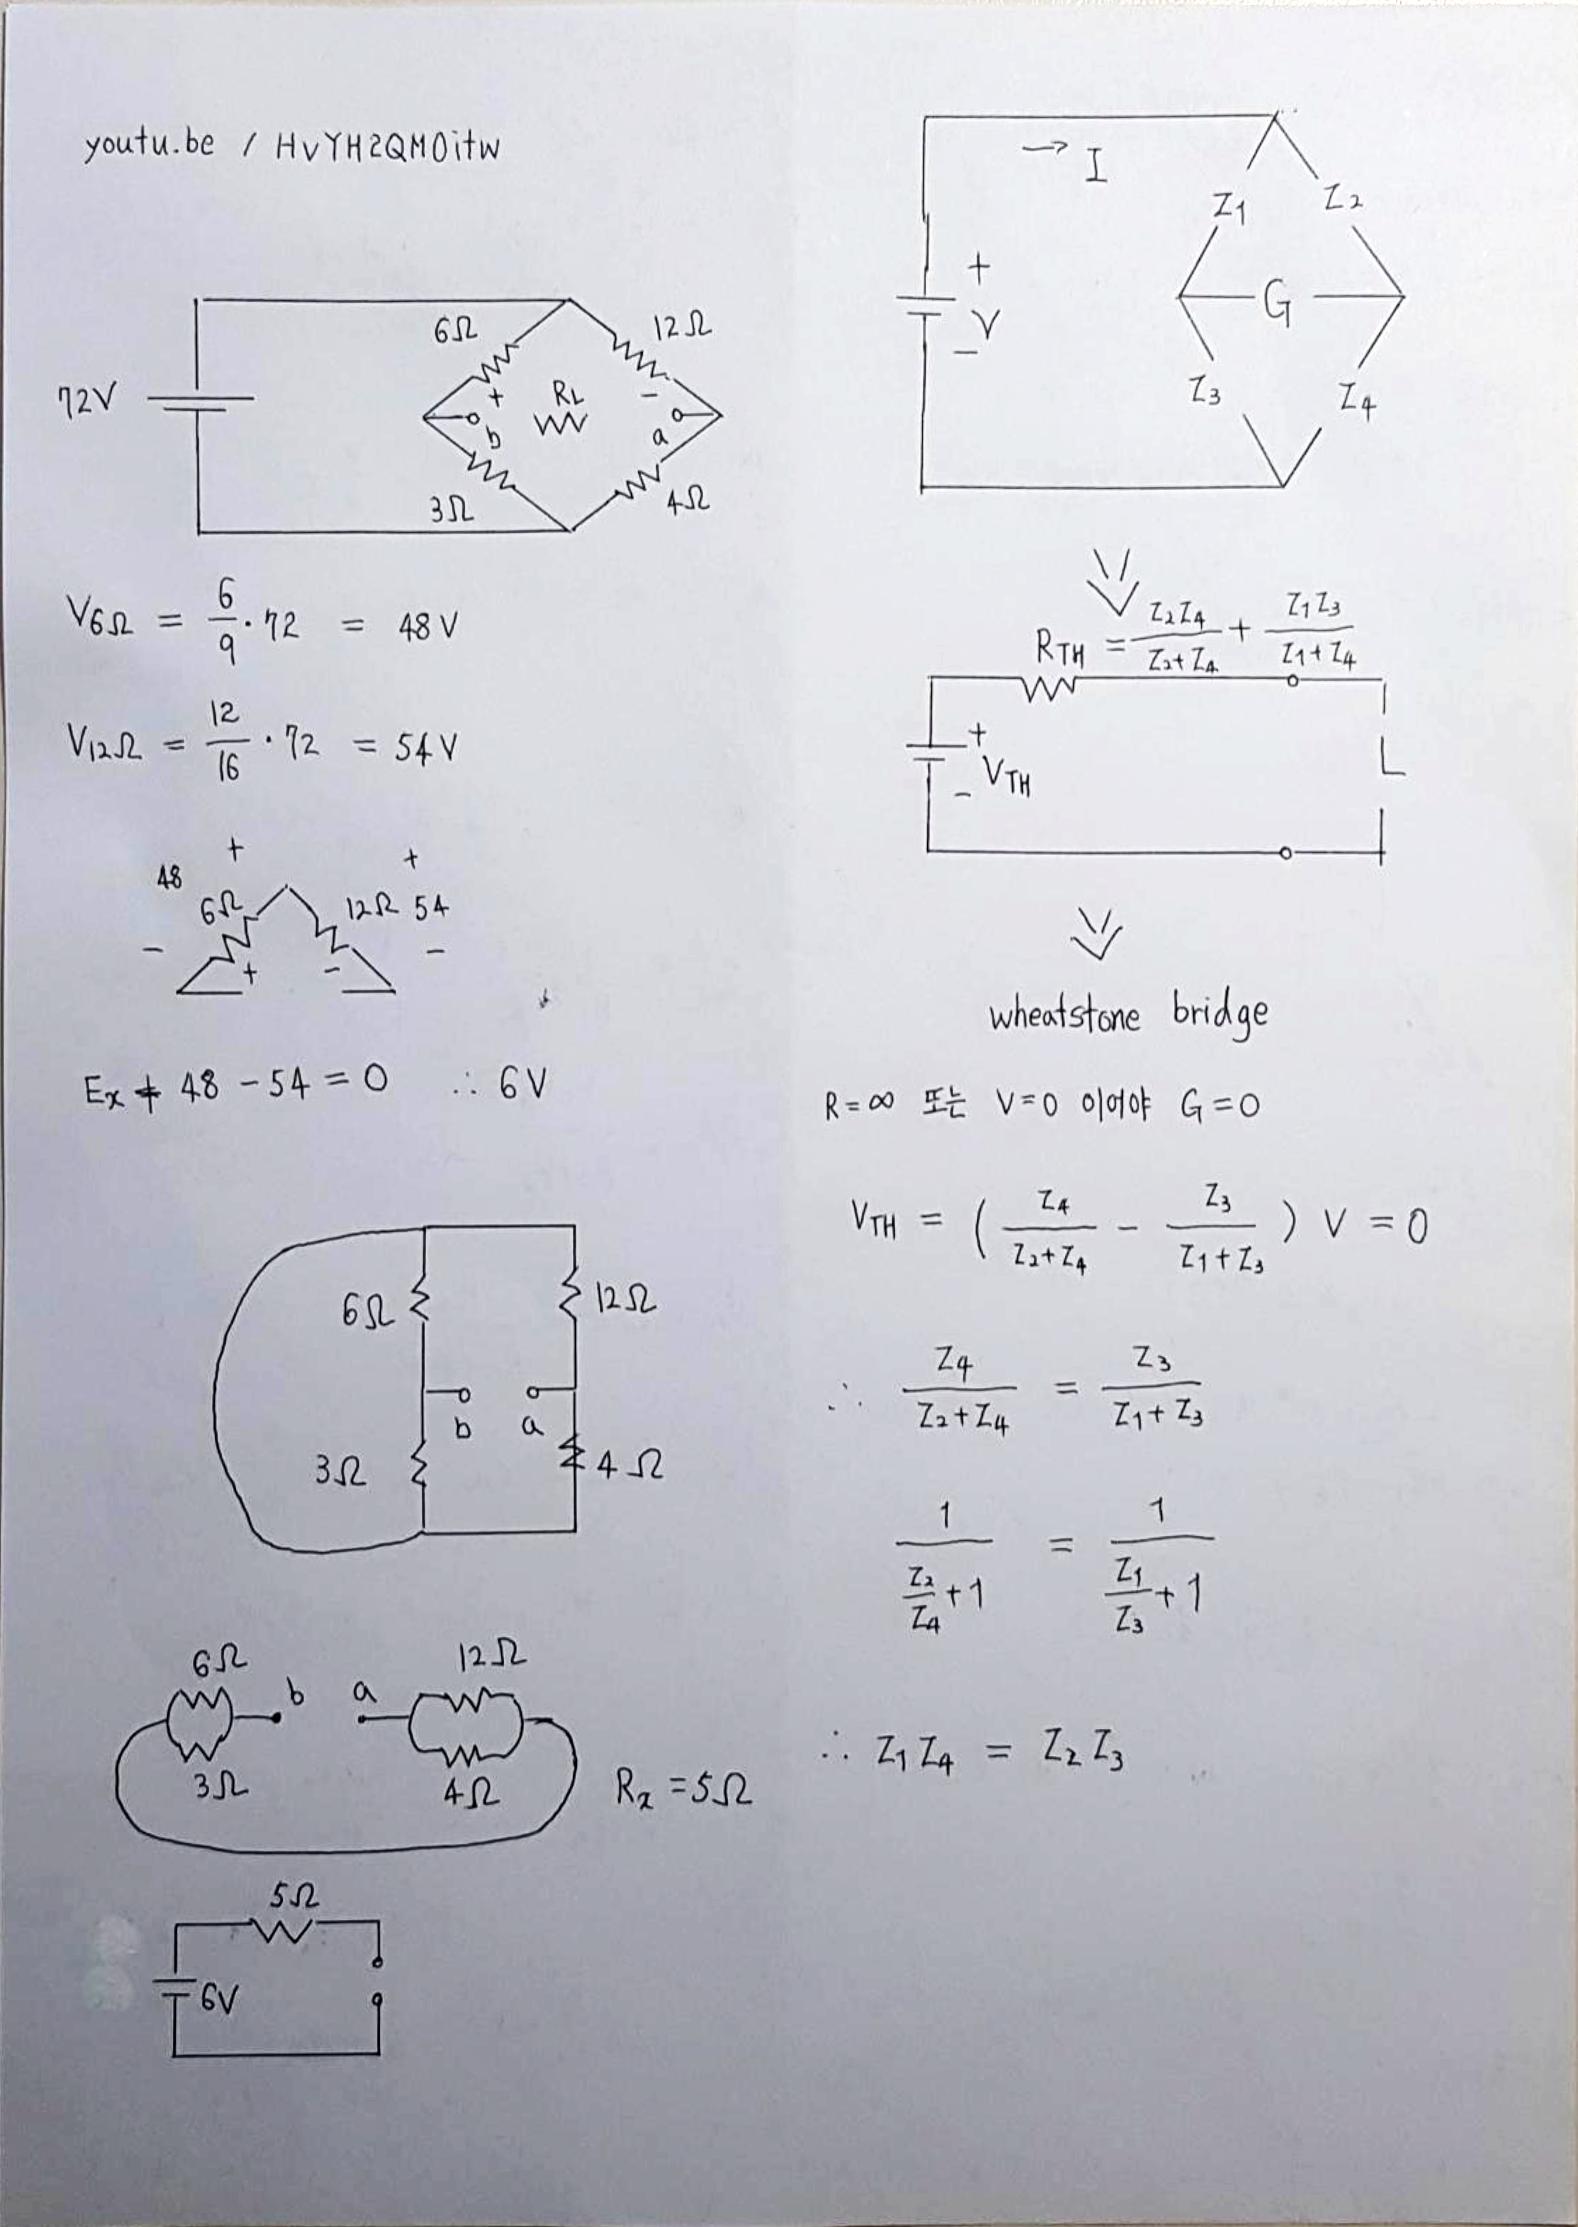 youtu.be / HvYH2QM0itw
72V
6Ω
12Ω
+
RL
-
b
a
3Ω
4Ω
V6Ω = 6/9 · 72 = 48 V
V12Ω = 12/16 · 72 = 54 V
+
+
48
6Ω
12Ω 54
-
-
+
-
Ex + 48 - 54 = 0 ∴ 6V
6Ω
12Ω
b
a
3Ω
4Ω
6Ω
12Ω
b
a
3Ω
4Ω
Rx = 5Ω
5Ω
6V
→ I
Z1
Z2
+
V
-
G
Z3
Z4
RTH = Z2Z4/Z2+Z4 + Z1Z3/Z1+Z4
+
VTH
-
L
wheatstone bridge
R = ∞ 또는 V = 0 이어야 G = 0
VTH = ( Z4/Z2+Z4 - Z3/Z1+Z3 ) V = 0
∴ Z4/Z2+Z4 = Z3/Z1+Z3
1/Z2/Z4+1 = 1/Z1/Z3+1
∴ Z1 Z4 = Z2 Z3